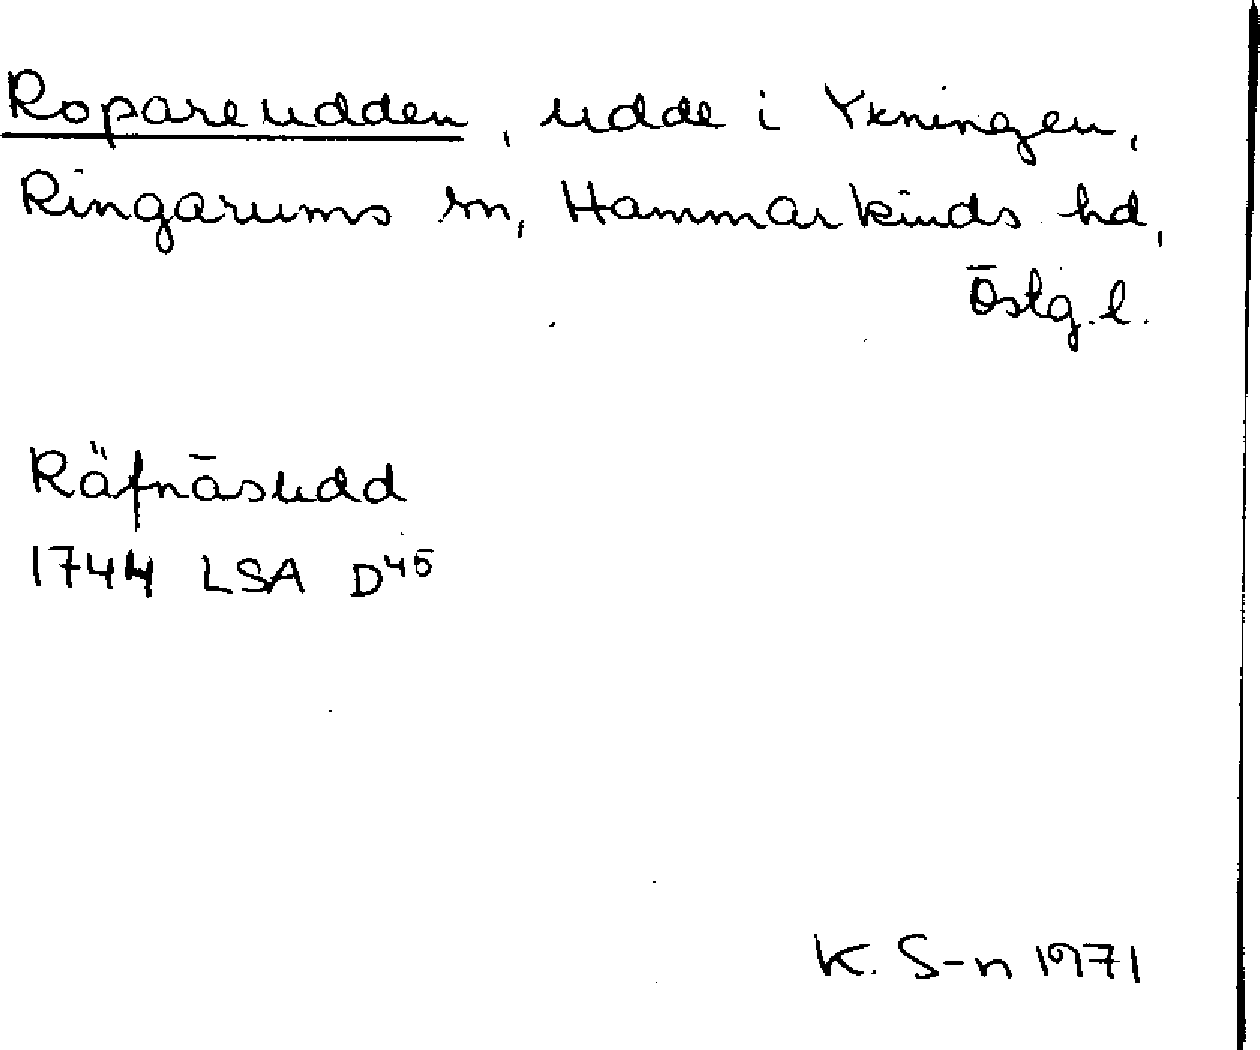 Ropareudden, udde i Yxningen,
Ringarums sn, Hammarkinds hd,
Östg. l.
Räfnäsudd
1744 LSA D⁴⁵
K. S-n 1971